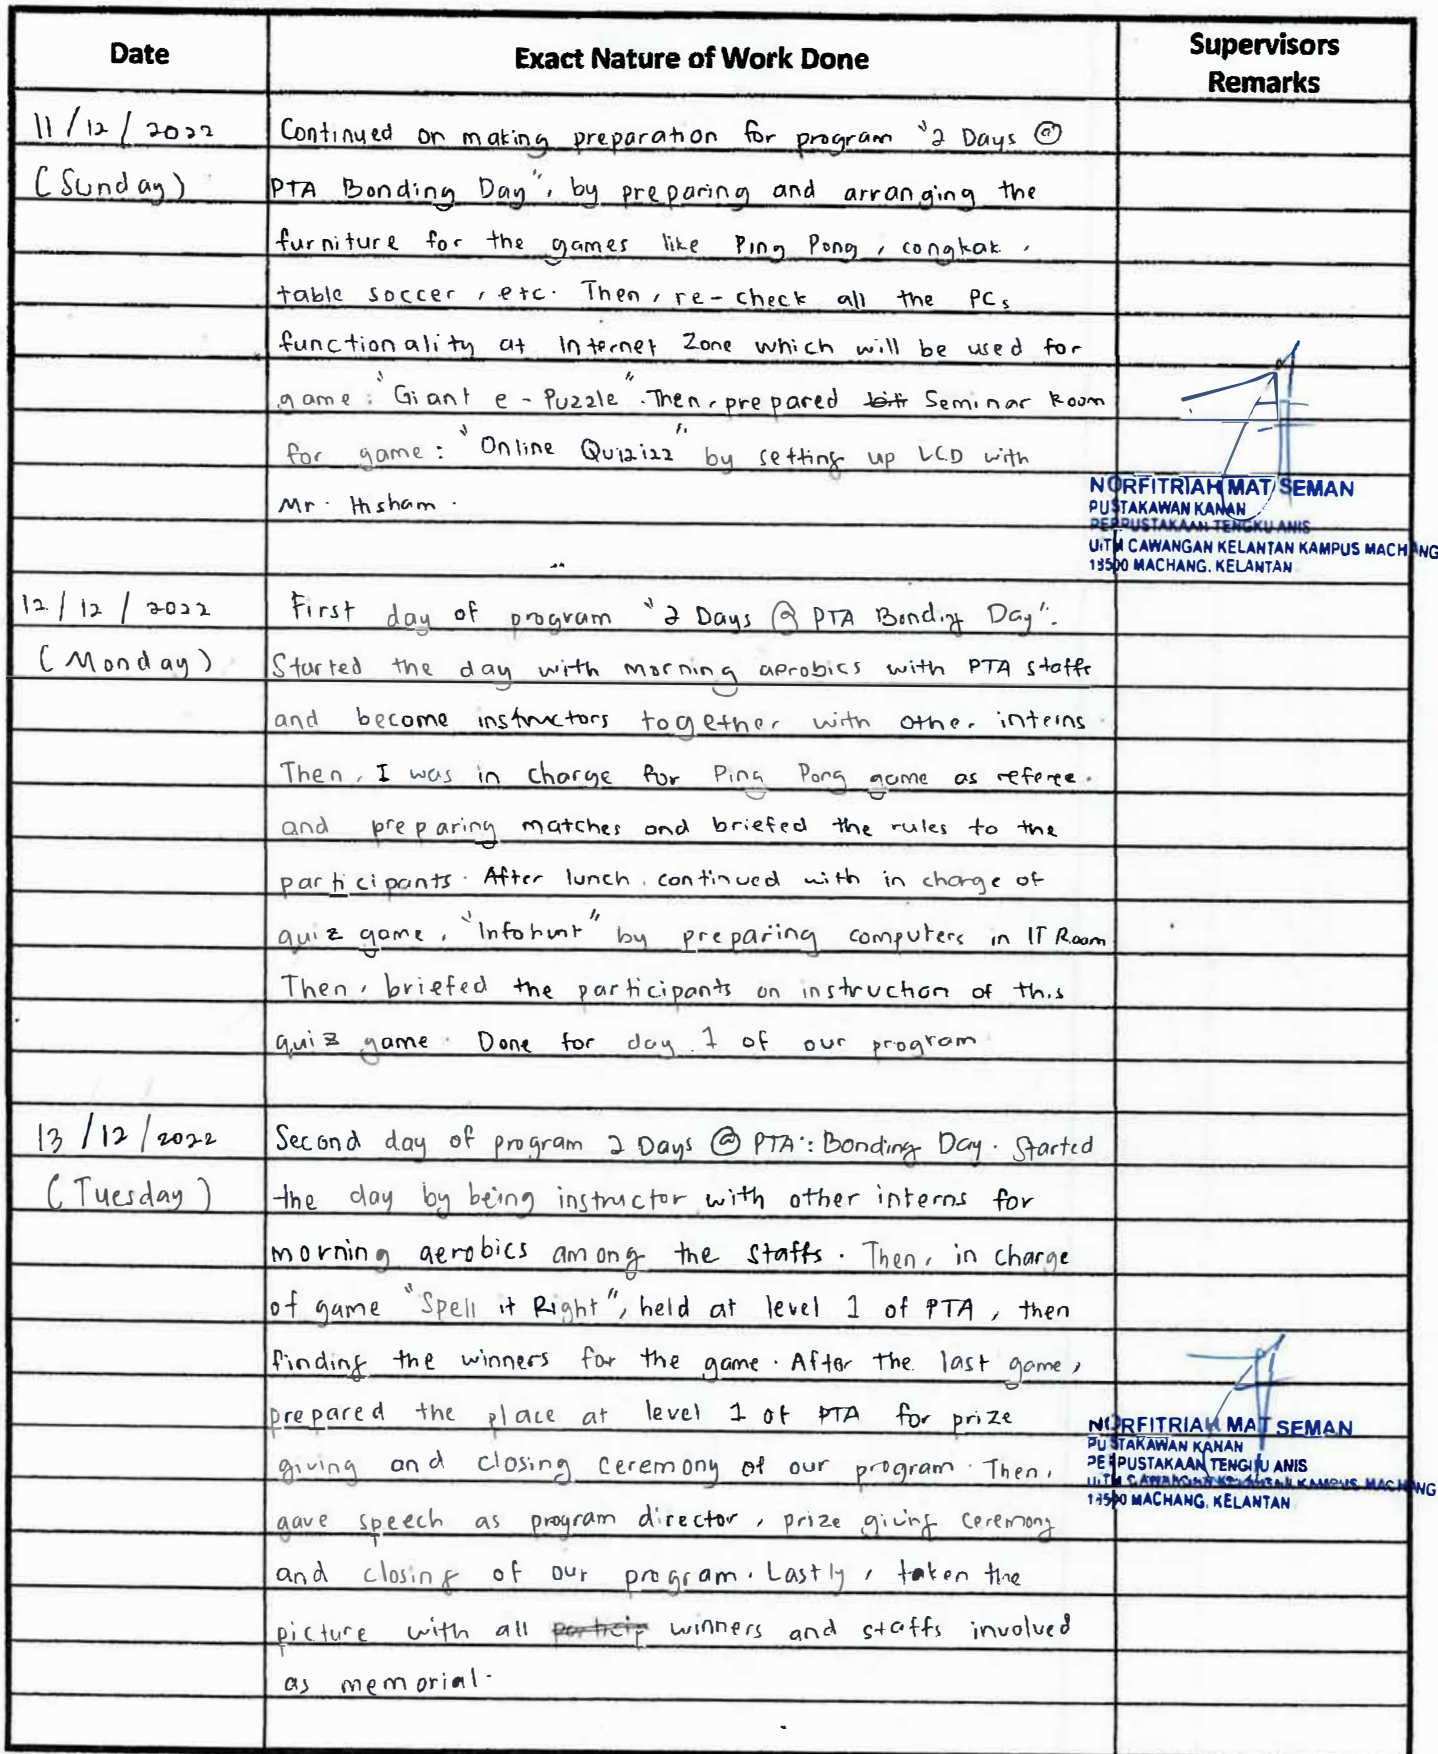 Date
Exact Nature of Work Done
Supervisors
Remarks
11/12/2022
(Sunday)
Continued on making preparation for program "2 Days @
PTA Bonding Day", by preparing and arranging the
furniture for the games like Ping Pong, congkak,
table soccer, etc. Then, re-check all the PCs
functionality at Internet Zone which will be used for
game: "Giant e-Puzzle". Then, prepared Seminar Room
for game: "Online Quizizz" by setting up LCD with
Mr. Hisham.
NORFITRIAH MAT SEMAN
PUSTAKAWAN KANAN
PERPUSTAKAAN TENGKU ANIS
UiTM CAWANGAN KELANTAN KAMPUS MACHANG
18500 MACHANG, KELANTAN
12/12/2022
(Monday)
First day of program "2 Days @ PTA Bonding Day".
Started the day with morning aerobics with PTA staffs
and become instructors together with other interns
Then, I was in charge for Ping Pong game as referee.
and preparing matches and briefed the rules to the
participants. After lunch, continued with in charge of
quiz game, "Infohunt" by preparing computers in IT Room
Then, briefed the participants on instruction of this
quiz game. Done for day 1 of our program
13/12/2022
(Tuesday)
Second day of program 2 Days @ PTA": Bonding Day. Started
the day by being instructor with other interns for
morning aerobics among the staffs. Then, in charge
of game "Spell it Right", held at level 1 of PTA, then
finding the winners for the game. After the last game,
prepared the place at level 1 of PTA for prize
giving and closing ceremony of our program. Then,
gave speech as program director, prize giving ceremony
and closing of our program. Lastly, taken the
picture with all particip winners and staffs involved
as memorial.
NORFITRIAH MAT SEMAN
PUSTAKAWAN KANAN
PERPUSTAKAAN TENGKU ANIS
UiTM CAWANGAN KELANTAN KAMPUS MACHANG
18500 MACHANG, KELANTAN